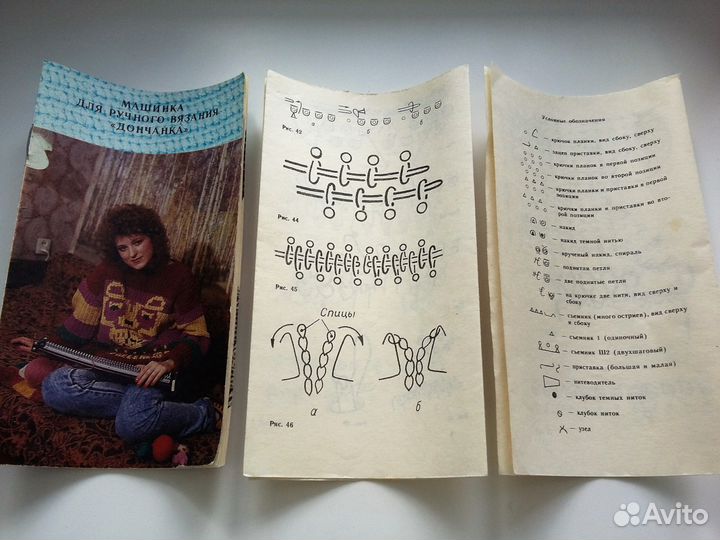 МАШИНКА
ДЛЯ РУЧНОГО ВЯЗАНИЯ
«ДОНЧАНКА»
Рис. 42
а
б
в
Рис. 44
Рис. 45
Спицы
а
б
Рис. 46
Условные обозначения
— крючок планки, вид сбоку, сверху
— зацеп приставки, вид сбоку, сверху
— крючки планок в первой позиции
— крючки планок во второй позиции
— крючки планки и приставки в первой
позиции
— крючки планки и приставки во вто-
рой позиции
— накид
— накид темной нитью
— крученый накид, спираль
— поднятая петля
— две поднятые петли
— на крючке две нити, вид сверху и
сбоку
— съемник (много остриев), вид сверху
и сбоку
— съемник 1 (одиночный)
— съемник Ш2 (двухшаговый)
— приставка (большая и малая)
— нитеводитель
— клубок темных ниток
— клубок ниток
— узел
Avito